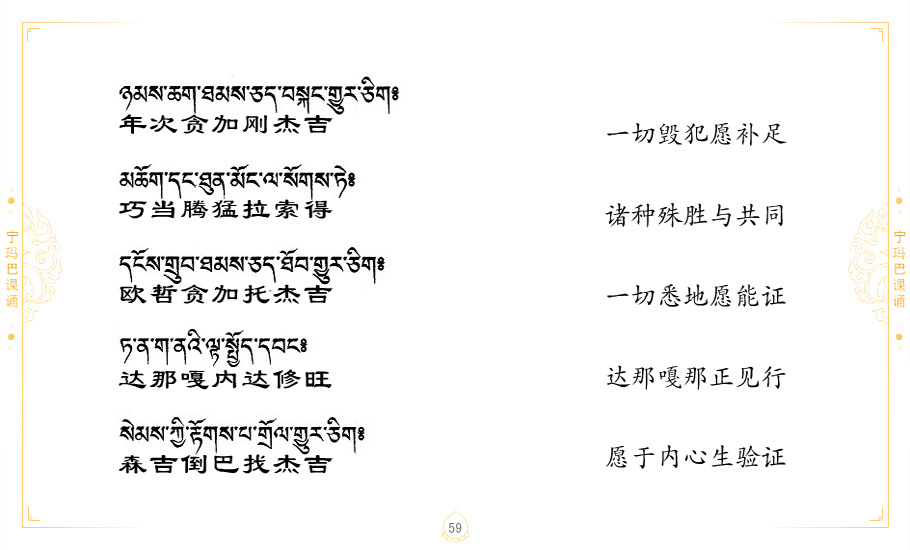 宁玛巴课诵
ཉམས་ཆག་ཐམས་ཅད་བསྐང་གྱུར་ཅིག༔
年次贪加刚杰吉
一切毁犯愿补足
མཆོག་དང་ཐུན་མོང་ལ་སོགས་ཏེ༔
巧当腾猛拉索得
诸种殊胜与共同
དངོས་གྲུབ་ཐམས་ཅད་ཐོབ་གྱུར་ཅིག༔
欧哲贪加托杰吉
一切悉地愿能证
ཏ་ན་ག་ནའི་ལྟ་སྤྱོད་དབང༔
达那嘎内达修旺
达那嘎那正见行
སེམས་ཀྱི་རྟོགས་པ་གྲོལ་གྱུར་ཅིག༔
森吉倒巴找杰吉
愿于内心生验证
宁玛巴课诵
59